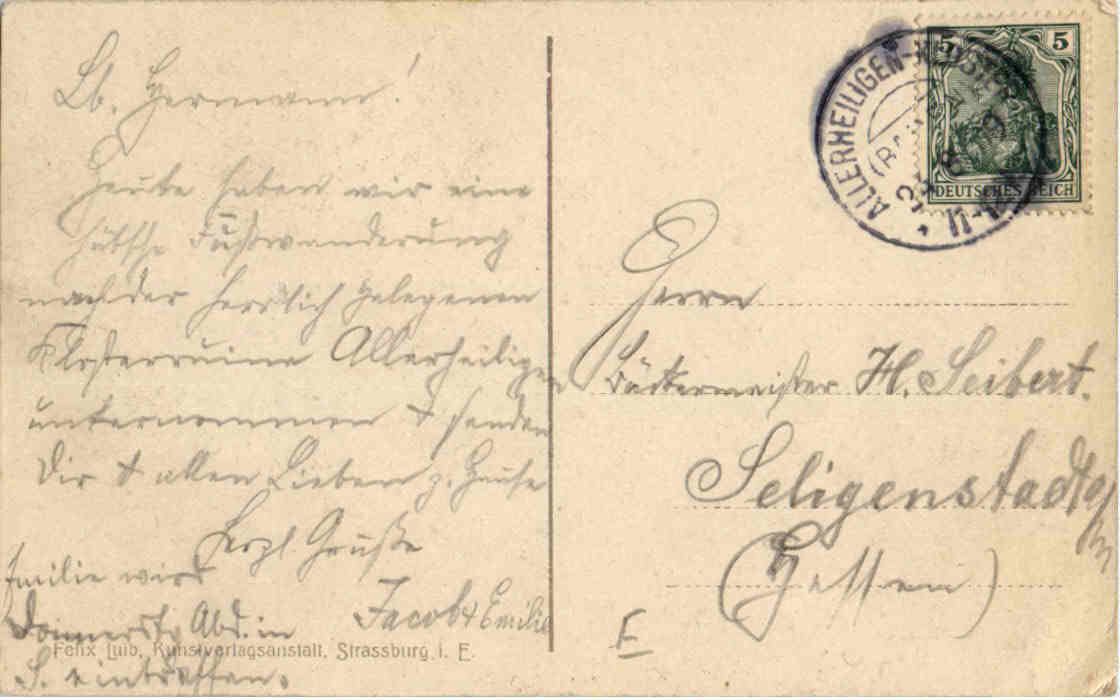 Lb. Hermann!
Heute haben wir eine
hübsche Fußwanderung
nach der herrlich gelegenen
Klosterruine Allerheiligen
unternommen & senden
Dir & allen Lieben z. Hause
herzl. Grüße
Jacob & Emilie
Emilie wird
Donnerstg Abd. in
S. eintreffen.
Felix Luib, Kunstverlagsanstalt, Strassburg i. E.
ALLERHEILIGEN-KLOSTER
5 5
DEUTSCHES REICH
Herrn
Bäckermeister H. Seibert.
Seligenstadt a/m
(Hessen)
E